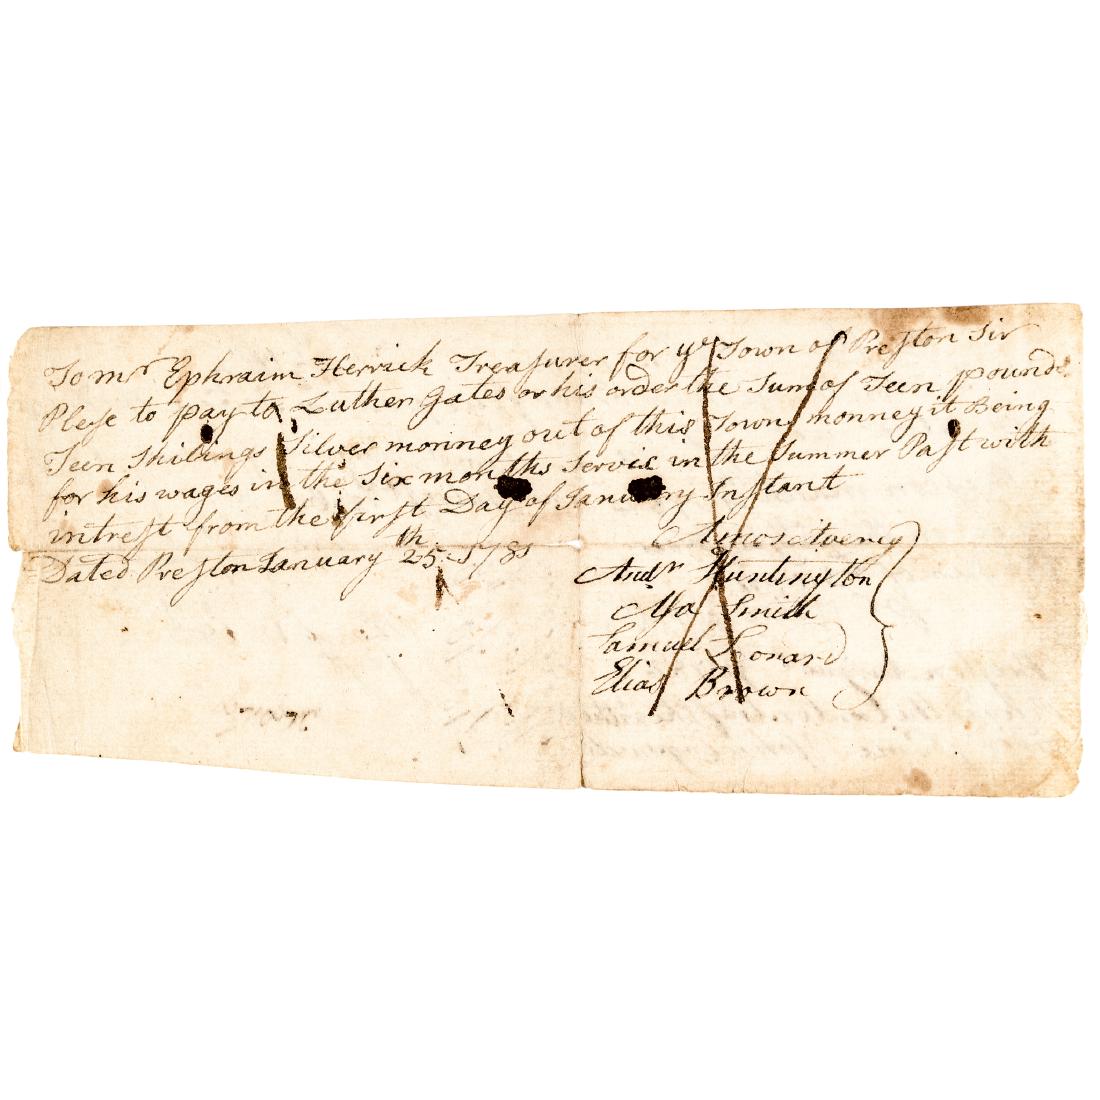 To mr Ephraim Herrick Treasurer for ye Town of Preston Sir
Plese to pay to Luther Gates or his order the Sum of Teen pounds
Teen Shilings Silver monney out of this Town monney it Being
for his wages in the Six months Servis in the Summer Past with
intrest from the first Day of January Instant
Dated Preston January 25th 1781
Amos Averig
Andr Huntington
Asa Smith
Samuel Lonard
Elias Brown